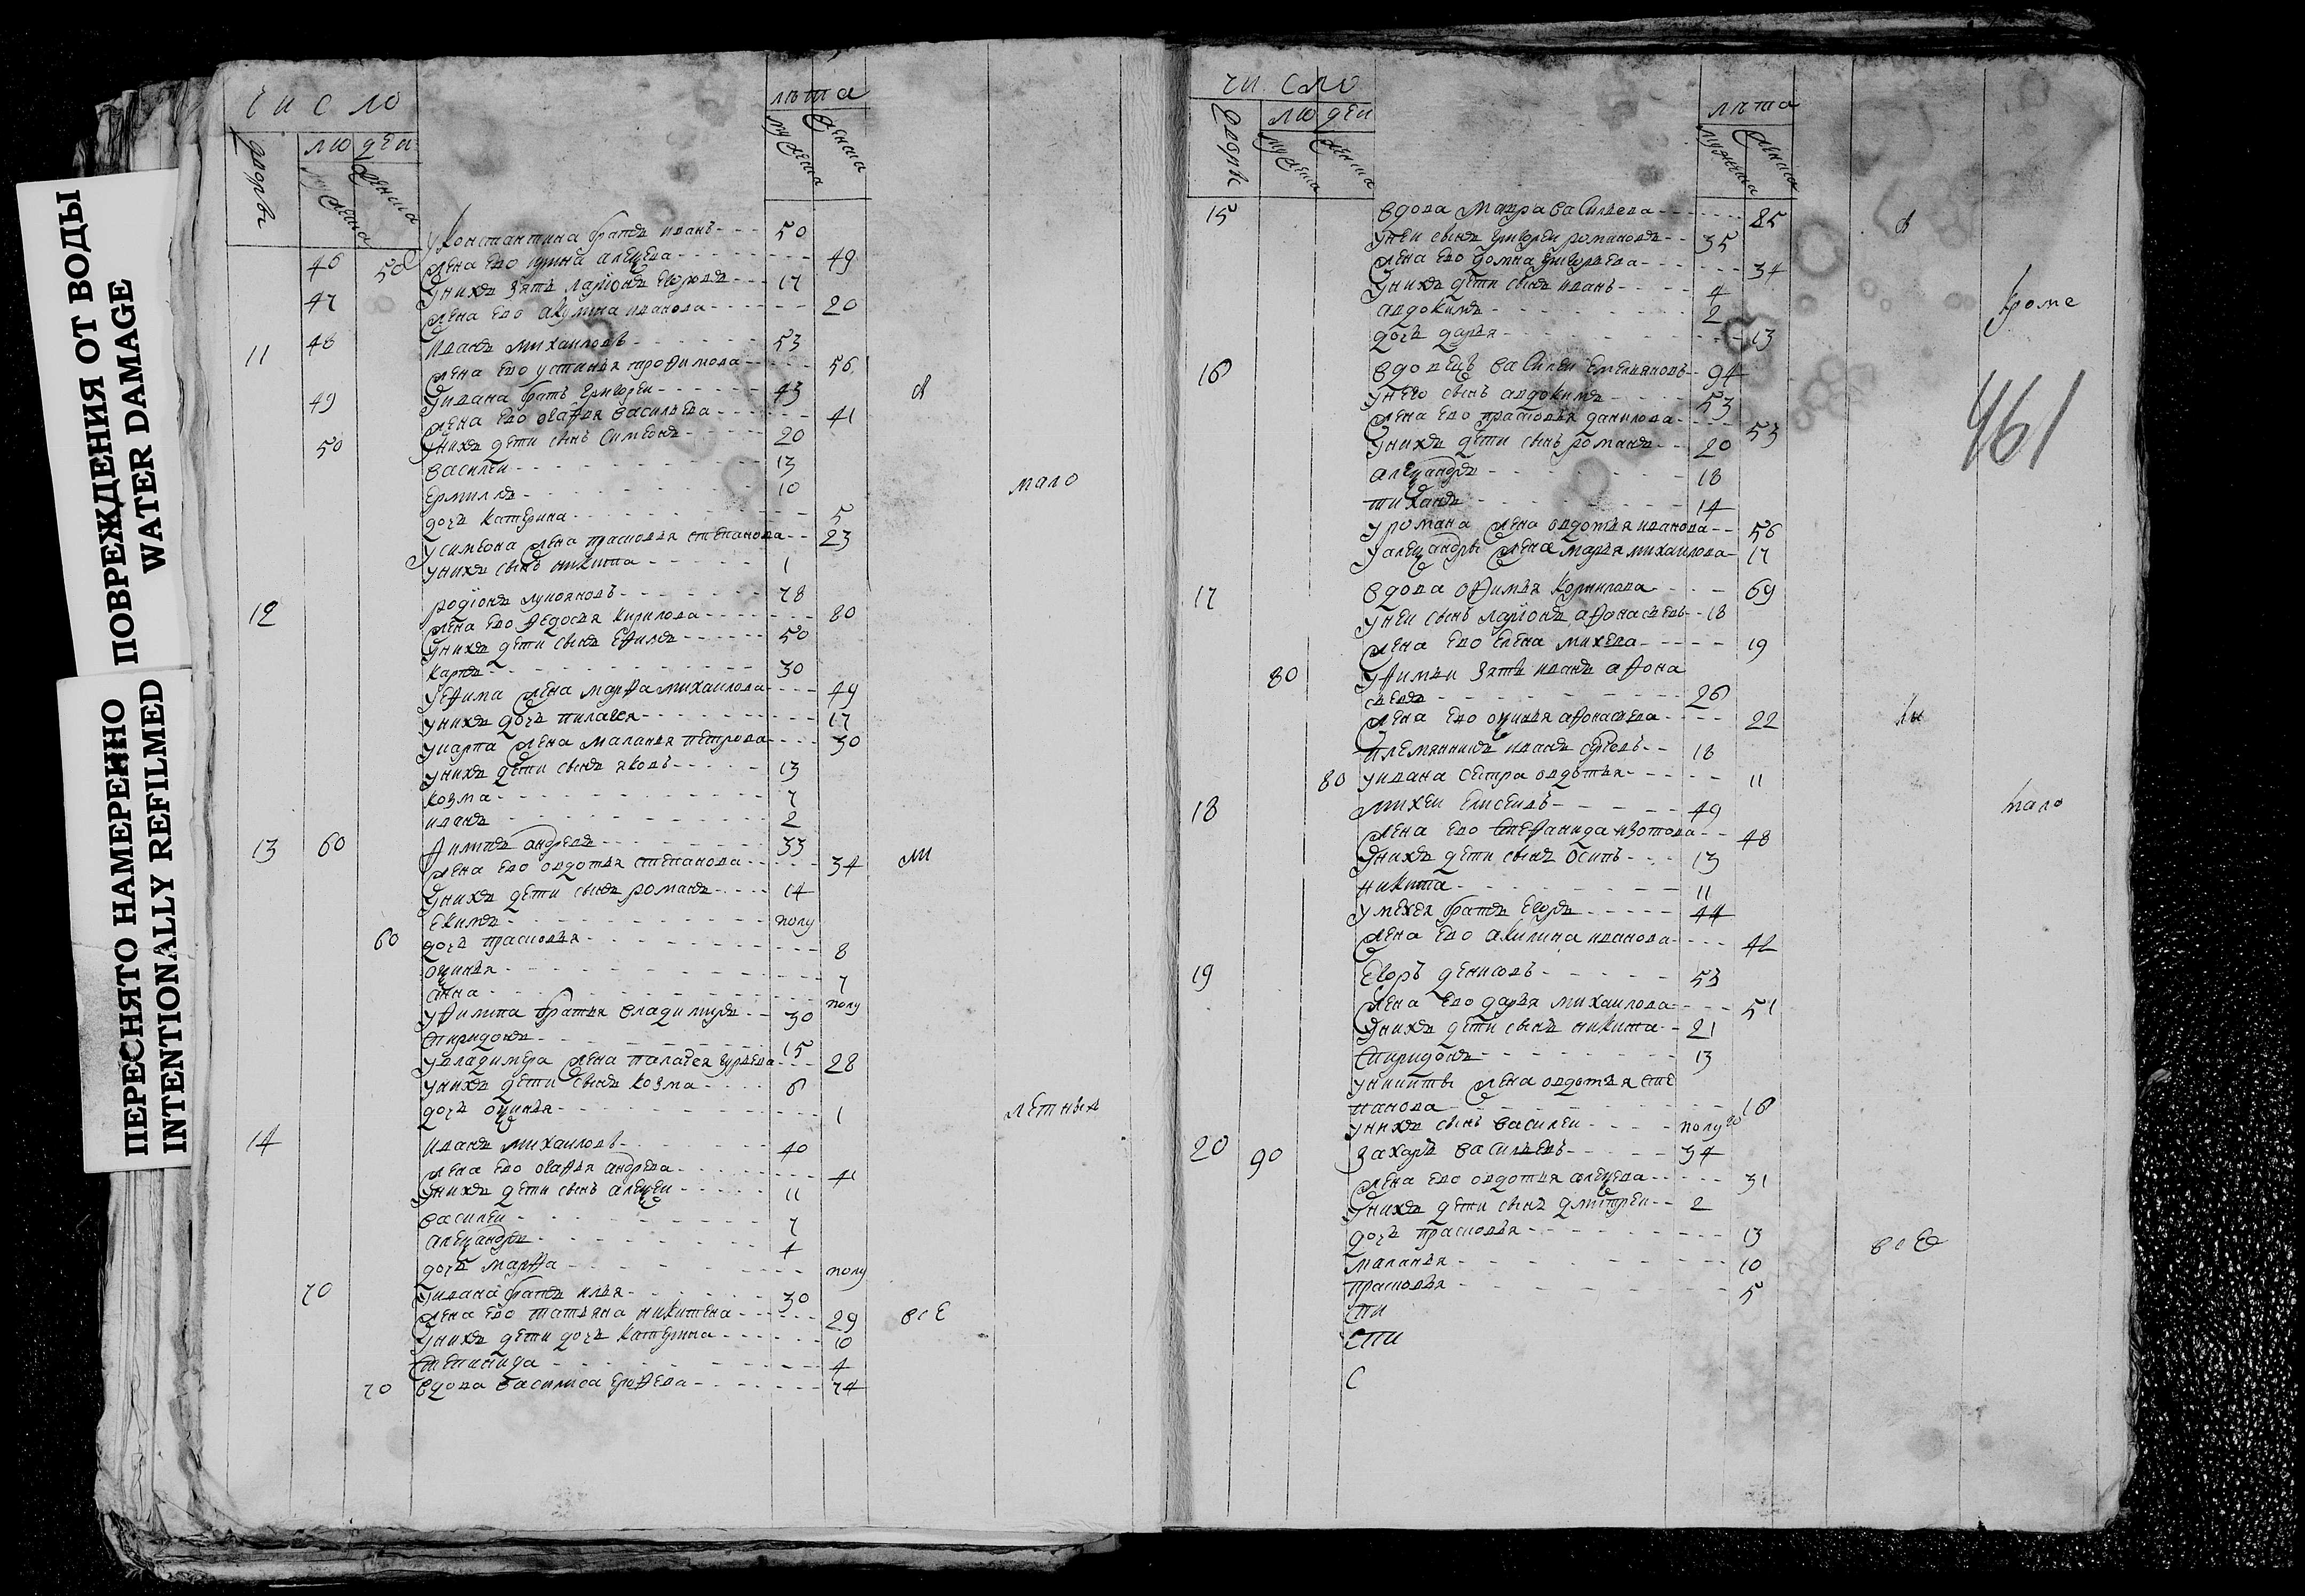 ПОВРЕЖДЕНИЯ ОТ ВОДЫ
WATER DAMAGE
ПЕРЕСНЯТО НАМЕРЕННО
INTENTIONALLY REFILMED
число
лѣта
дворовъ
людеи
мужеска
женска
мужеска
женска
у Константина братъ иванъ 50
46 50 жена ево ирина алеѯева 49
унихъ зять ларїонъ егоровъ 17
47 жена ево акулина иванова 20
11 48 иванъ михаиловъ 53
жена ево устинья трофимова 56
49 уивана братъ григореи 43
жена ево агафья васильева 41
50 унихъ дети сынъ симеонъ 20
василеи 13
ермилъ 10
мало
дочь катерина 5
усимеона жена прасковья степанова 23
унихъ сынъ никита 1
12 родїонъ лукояновъ 78
жена ево федосья кирилова 80
унихъ дети сынъ ефимъ 50
карпъ 30
уефима жена марфа михаилова 49
унихъ дочь пилагея 17
укарпа жена маланья петрова 30
унихъ дети сынъ яковъ 13
козма 7
иванъ 2
13 60 филипъ андреевъ 33
жена ево овдотья степанова 34
ли
унихъ дети сынъ романъ 14
екимъ полу
60 дочь прасковья 8
оѯинья 7
анна полу
уфилипа братья владимиръ 30
спиридонъ 15
увладимера жена палагея гурьева 28
унихъ дети сынъ козма 6
дочь оѯинья 1
летныхъ
14 иванъ михаиловъ 40
жена ево агафья андреева 41
унихъ дети сынъ алеѯеи 11
василеи 7
алеѯандръ 4
дочь марфа полу
70 уивана братъ илья 30
жена ево татьяна никитена 29
все
унихъ дети дочь катерина 10
степанида 4
70 вдова василиса ерофеева 74
число
лѣта
дворовъ
людеи
мужеска
женска
мужеска
женска
15 вдова мавра васильева 85
унеи сынъ григореи романовъ 35
жена ево домна григорьева 34
унихъ дети сынъ иванъ 4
кроме
авдокимъ 2
дочь дарья 13
16 вдовецъ василеи емельяновъ 94
461
унего сынъ авдокимъ 53
жена ево прасковья данилова 53
унихъ дети сынъ романъ 20
алеѯандръ 18
тиханъ 14
уромана жена овдотья иванова 56
уалеѯандры жена марья михаилова 17
17 вдова офимья корнилова 69
унеи сынъ ларїонъ афонасьевъ 18
жена ево елена михеева 19
80 уфимьи зять иванъ афона
сьевъ 26
жена ево оѯинья афонасьева 22
племянникъ иванъ 18
80 уивана сестра овдотья 11
18 михеи елисеивъ 49
мало
жена ево стефанида изотова 48
унихъ дети сынъ осипъ 13
никита 11
умехея братъ егоръ 44
жена ево акилина иванова 42
19 егоръ денисовъ 53
жена ево дарья михаилова 51
унихъ дети сынъ никита 21
спиридонъ 13
уникиты жена овдотья сте
панова 16
унихъ сынъ василеи полу
20 90 захаръ васильевъ 34
жена ево овдотья алеѯеева 31
унихъ дети сынъ дмитреи 2
дочь прасковья 13
все
маланья 10
прасковья 5
спи
спи
с